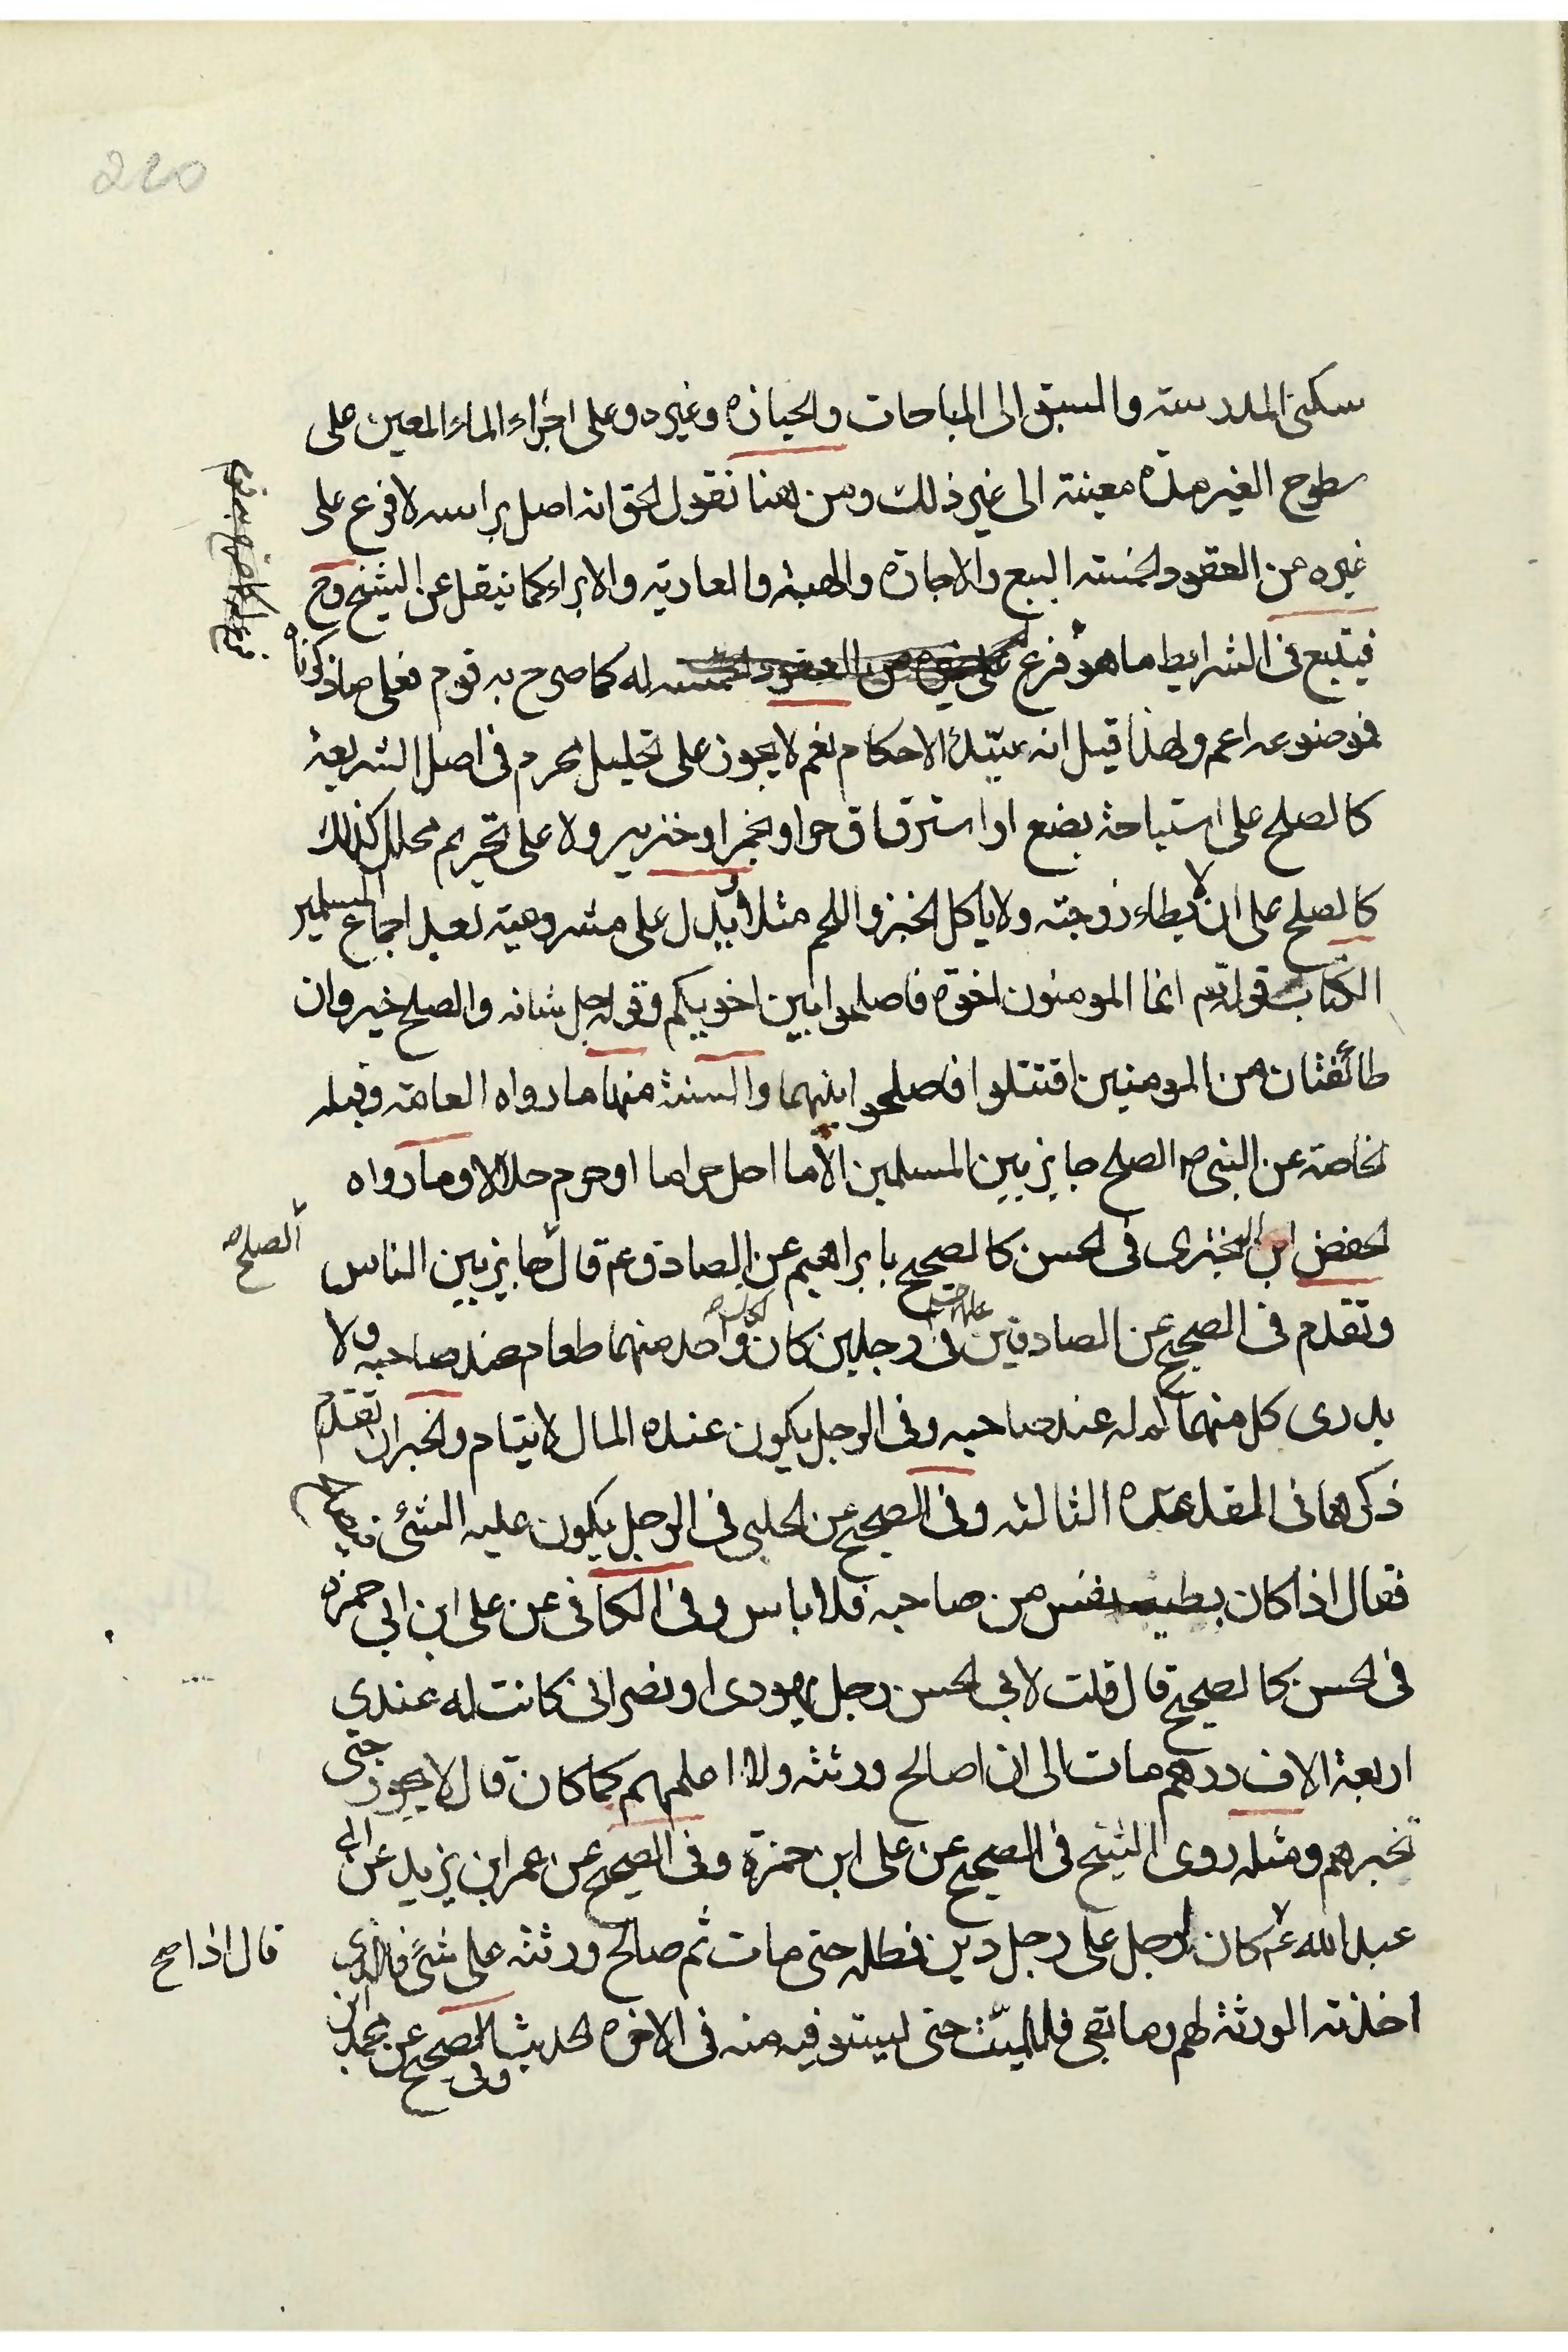 220
سكنى المدرسة والسبق الى المباحات والحيازه وغيره وعلى اجراء الماء المعين على
سطوح الغير مدة معينة الى غير ذلك ومن هنا نقول الحق انه اصل براسه لا فرع على
غيره من العقود الخمسته البيع والاجازه والهبة والعاريه والابراء كما نيقل عن الشيخ وح
فيتبع فى الشرايط ما هو فرع له كما صرح به قوم فعلى ماذكرناه
فموضوعه اعم ولهذا قيل انه سيّد الاحكام نعم لا يجوز على تحليل محرم فى اصل الشريعة
كالصلح على استباحة بضع او استرقاق حر او خمر او خنزير ولا على تحريم محلل كذلك
كالصلح على ان لا يطاء زوجته ولا ياكل الخبز واللحم مثلا ويدل على مشروعيته بعد اجماع المسلمين
الكتاب قوله تم انما المومنون اخوة فاصلحوا بين اخويكم وقوله جل شانه والصلح خير وان
طائفتان من المومنين اقتتلوا فاصلحوا بينهما والسنة منها ما رواه العامة وقبله
الخاصة عن النبى ص الصلح جايز بين المسلمين الا ما احل حراما او حرم حلالا وما رواه
الحفض ابن البخترى فى الحسن كالصحيح بابراهيم عن الصادق ع قال جايز بين الناس
الصلح
وتقدم فى الصحيح عن الصادقين فى رجلين كان لكل واحد منهما طعام عند صاحبه ولا
يدرى كل منهما كم له عند صاحبه وفى الرجل يكون عنده المال لايتام والخبران تقدم
ذكرهما فى المقدمة الثالثه وفى الصحيح عن الحلبى فى الرجل يكون عليه الشئ
فقال اذا كان بطيبه نفس من صاحبه فلا باس وفى الكافى عن على ابن ابى حمزه
فى الحسن كالصحيح قال قلت لابى الحسن رجل يهودى او نصرانى كانت له عندى
اربعة الاف درهم مات الى ان اصالح ورثته ولا اعلمهم كما كان قال لا يجوز حتى
تخبرهم ومثله روى الشيخ فى الصحيح عن على ابن حمزة وفى الصحيح عن عمر ابن يزيد عن ابى
عبد الله ع كان لرجل على رجل دين فطله حتى مات ثم صالح ورثته على شئ فالذى
قال اذا صح
اخذته الورثة لهم وما بقى فللميّت حتى يستوفيه منه فى الاخره الحديث وفى الصحيح عن محمد ابن